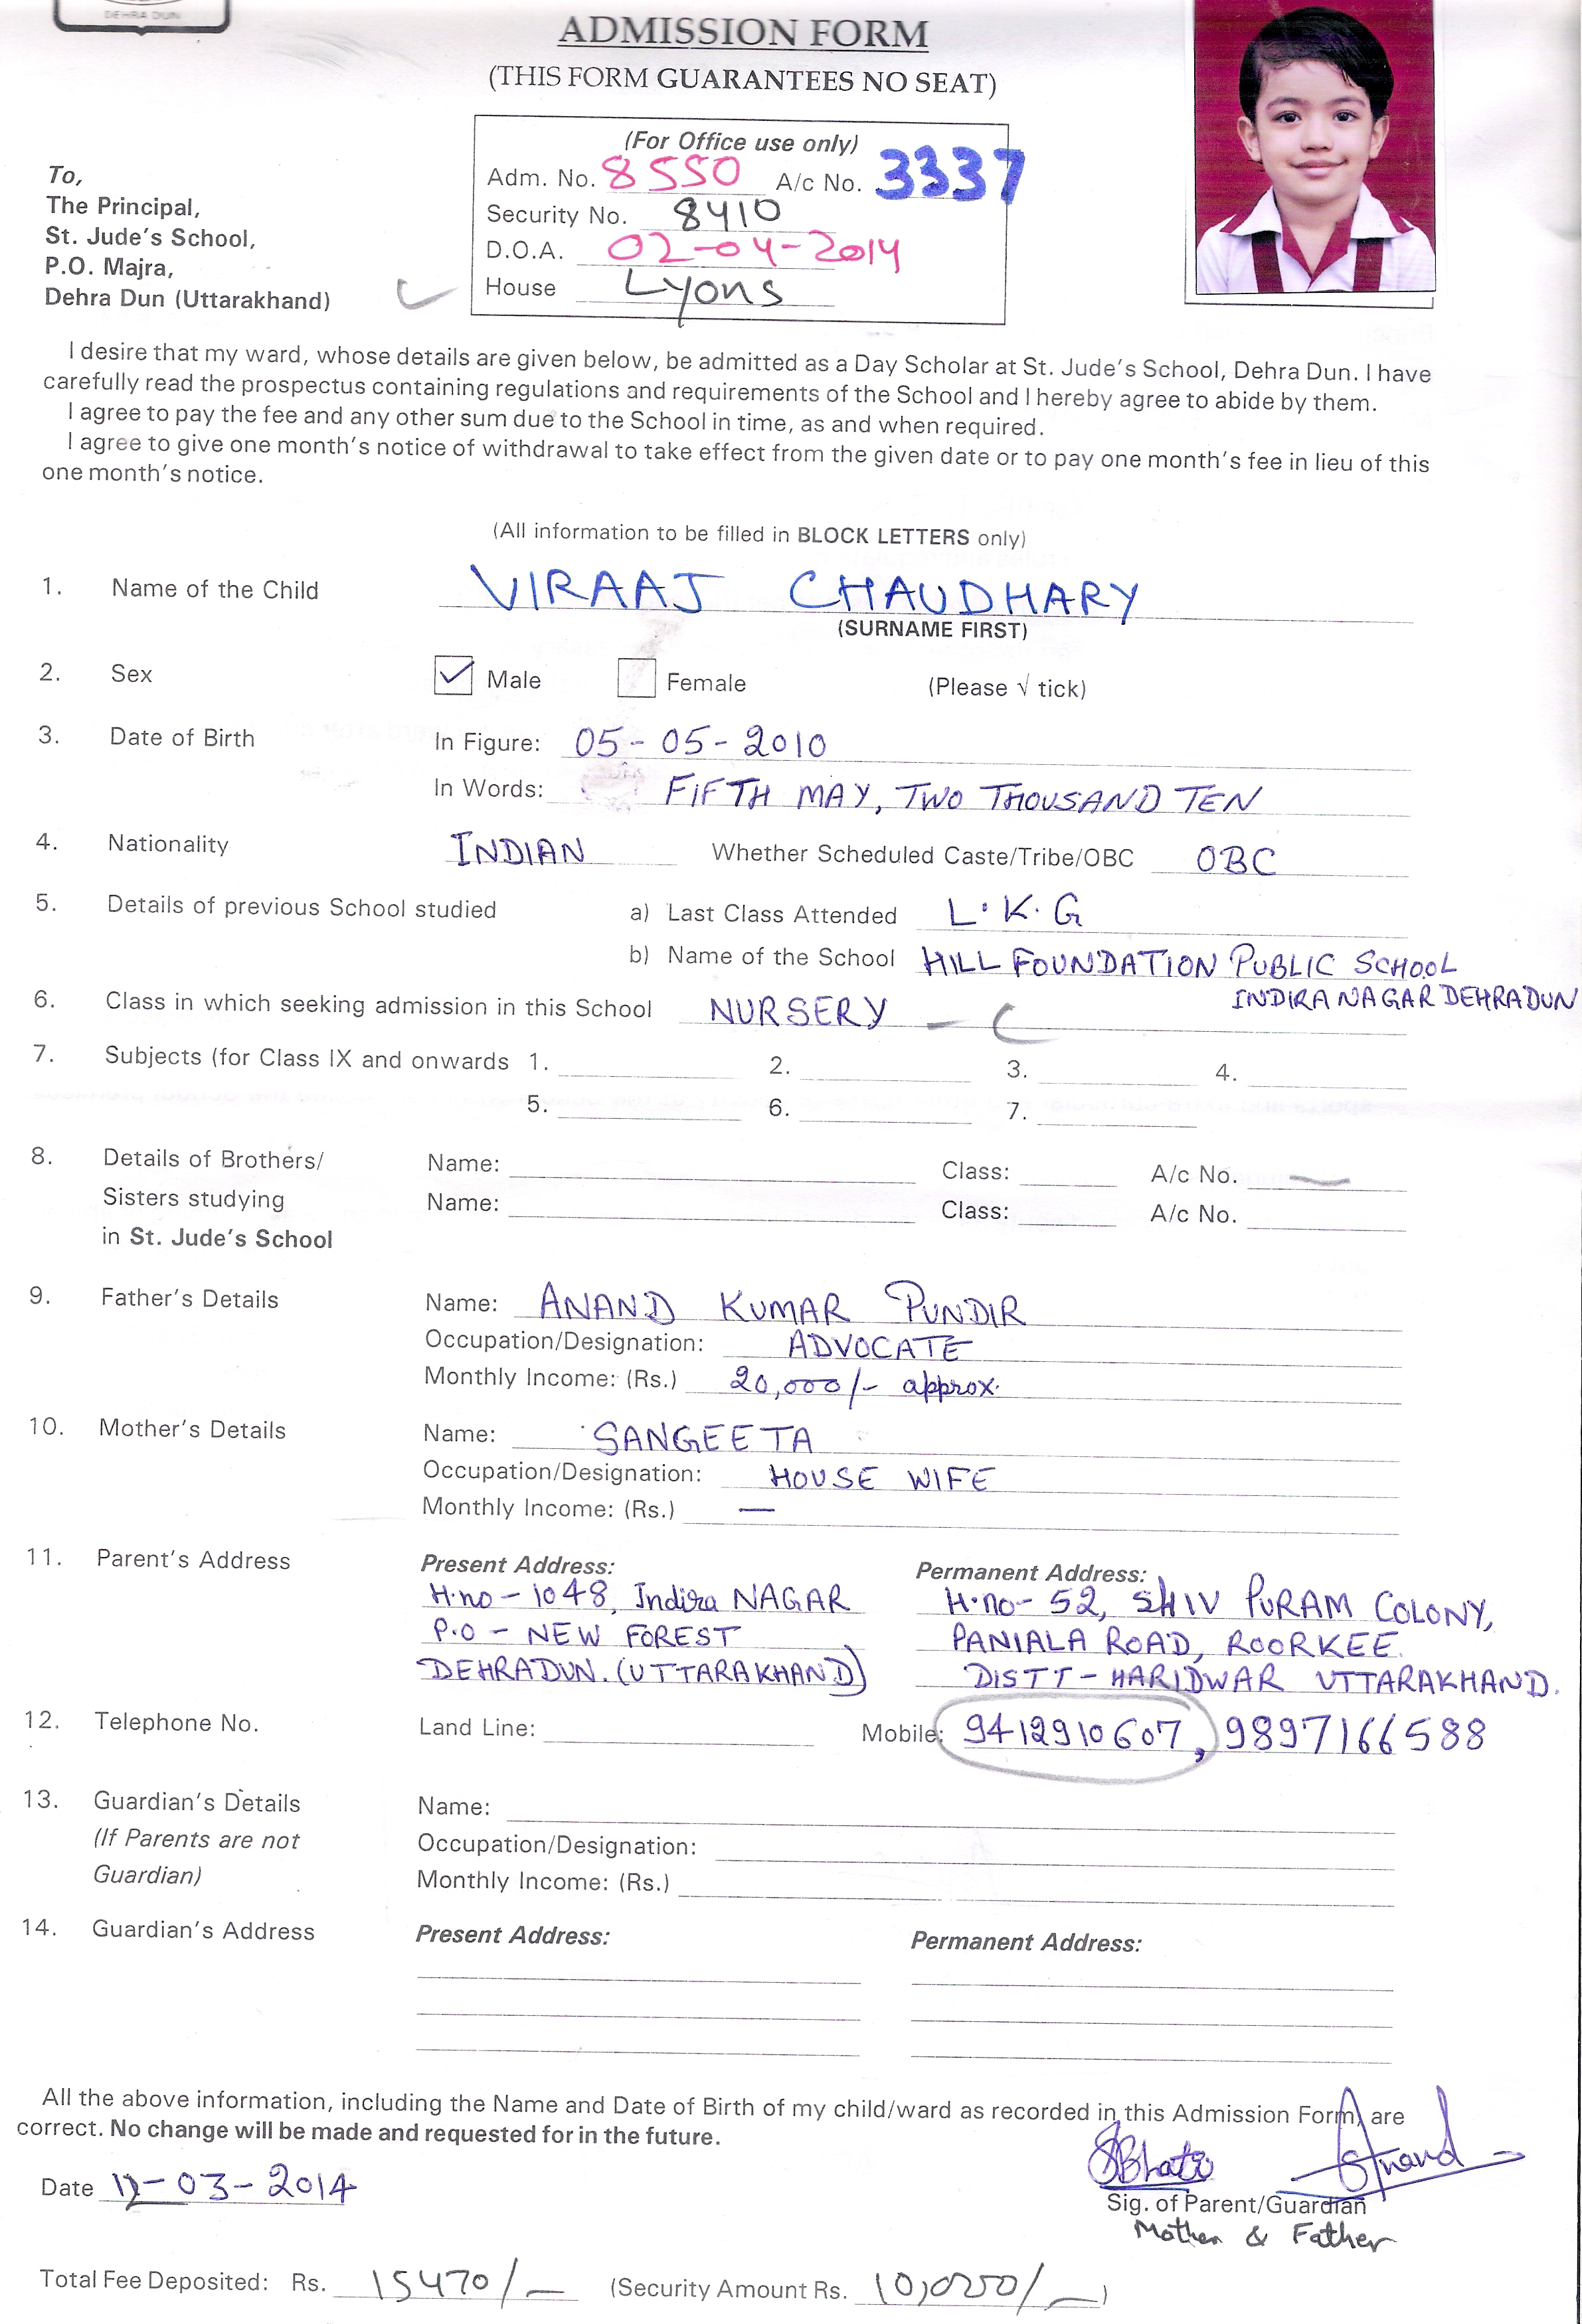 DEHRA DUN
ADMISSION FORM
(THIS FORM GUARANTEES NO SEAT)
(For Office use only)
Adm. No. 8550 A/c No. 3337
Security No. 8410
D.O.A. 02-04-2014
House Lyons
To,
The Principal,
St. Jude's School,
P.O. Majra,
Dehra Dun (Uttarakhand)
I desire that my ward, whose details are given below, be admitted as a Day Scholar at St. Jude's School, Dehra Dun. I have
carefully read the prospectus containing regulations and requirements of the School and I hereby agree to abide by them.
I agree to pay the fee and any other sum due to the School in time, as and when required.
I agree to give one month's notice of withdrawal to take effect from the given date or to pay one month's fee in lieu of this
one month's notice.
(All information to be filled in BLOCK LETTERS only)
1. Name of the Child VIRAAJ CHAUDHARY
(SURNAME FIRST)
2. Sex Male Female (Please √ tick)
3. Date of Birth In Figure: 05-05-2010
In Words: FIFTH MAY, TWO THOUSAND TEN
4. Nationality INDIAN Whether Scheduled Caste/Tribe/OBC OBC
5. Details of previous School studied a) Last Class Attended L.K.G
b) Name of the School HILL FOUNDATION PUBLIC SCHOOL
INDIRA NAGAR DEHRADUN
6. Class in which seeking admission in this School NURSERY - C
7. Subjects (for Class IX and onwards 1. 2. 3. 4.
5. 6. 7.
8. Details of Brothers/ Name: Class: A/c No. —
Sisters studying Name: Class: A/c No.
in St. Jude's School
9. Father's Details Name: ANAND KUMAR PUNDIR
Occupation/Designation: ADVOCATE
Monthly Income: (Rs.) 20,000/- approx.
10. Mother's Details Name: SANGEETA
Occupation/Designation: HOUSE WIFE
Monthly Income: (Rs.) —
11. Parent's Address Present Address: Permanent Address:
H.no - 1048, Indira NAGAR H.no- 52, SHIV PURAM COLONY,
P.O - NEW FOREST PANIALA ROAD, ROORKEE.
DEHRADUN. (UTTARAKHAND) DISTT - HARIDWAR UTTARAKHAND.
12. Telephone No. Land Line: Mobile: 9412910607, 9897166588
13. Guardian's Details Name:
(If Parents are not Occupation/Designation:
Guardian) Monthly Income: (Rs.)
14. Guardian's Address Present Address: Permanent Address:
All the above information, including the Name and Date of Birth of my child/ward as recorded in this Admission Form, are
correct. No change will be made and requested for in the future.
Date 12-03-2014
Sig. of Parent/Guardian
Mother & Father
Total Fee Deposited: Rs. 15470/- (Security Amount Rs. 10,000/-)